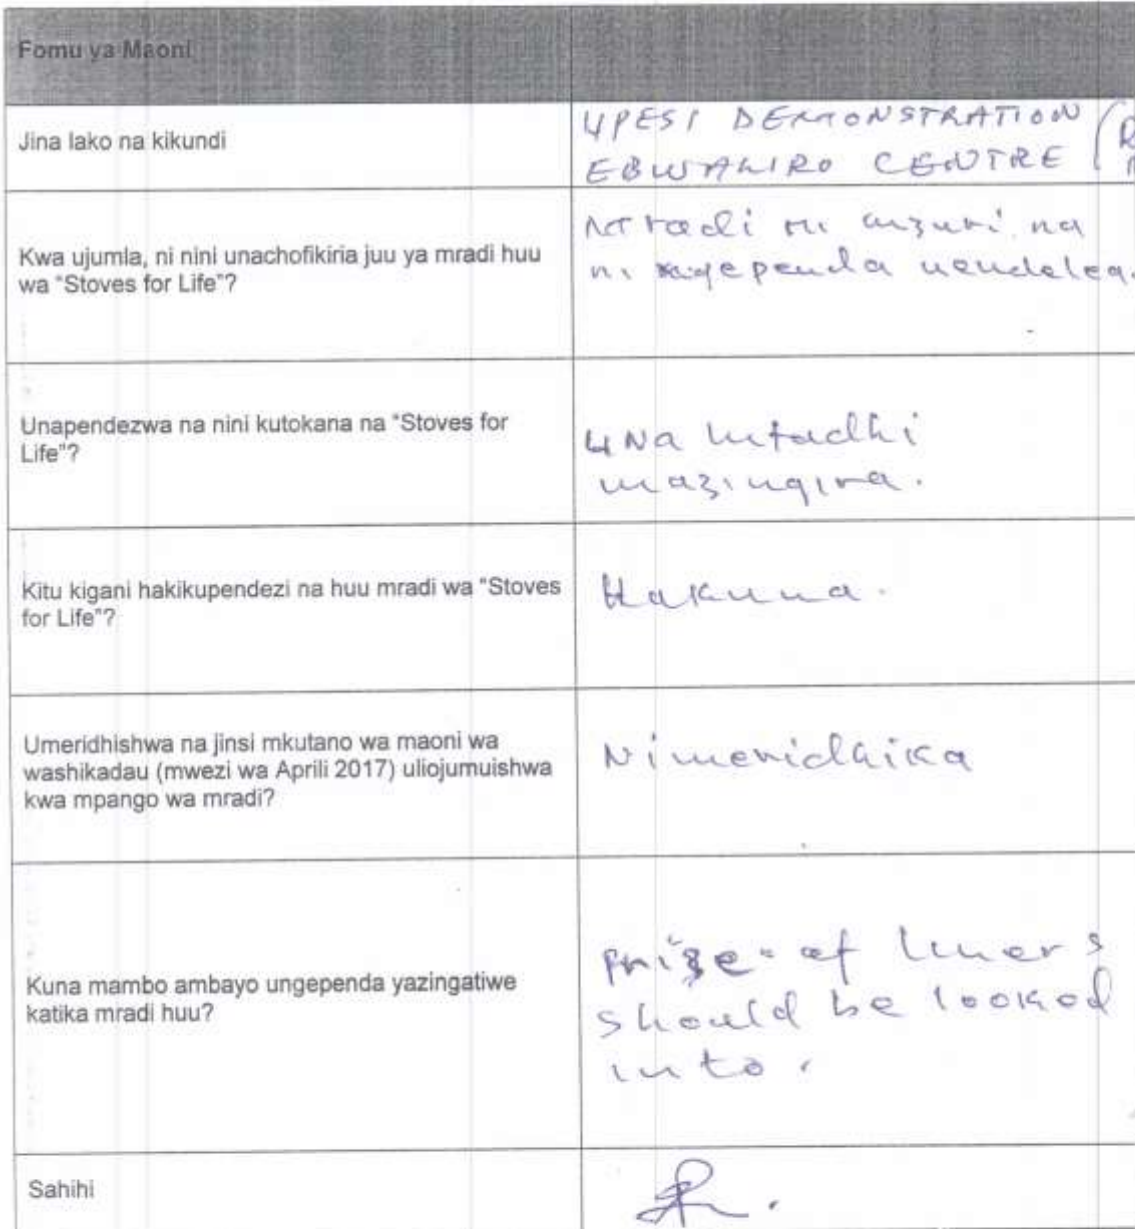 Fomu ya Maoni
Jina lako na kikundi
UPESI DEMONSTRATION
EBWALIRO CENTRE
Kwa ujumla, ni nini unachofikiria juu ya mradi huu
wa "Stoves for Life"?
Mradi ni mzuri na
ni ngependa uendelea.
Unapendezwa na nini kutokana na "Stoves for
Life"?
UNa hifadhi
mazingira.
Kitu kigani hakikupendezi na huu mradi wa "Stoves
for Life"?
Hakuna.
Umeridhishwa na jinsi mkutano wa maoni wa
washikadau (mwezi wa Aprili 2017) uliojumuishwa
kwa mpango wa mradi?
Nimeridhika
Kuna mambo ambayo ungependa yazingatiwe
katika mradi huu?
prize of liners
should be looked
into.
Sahihi